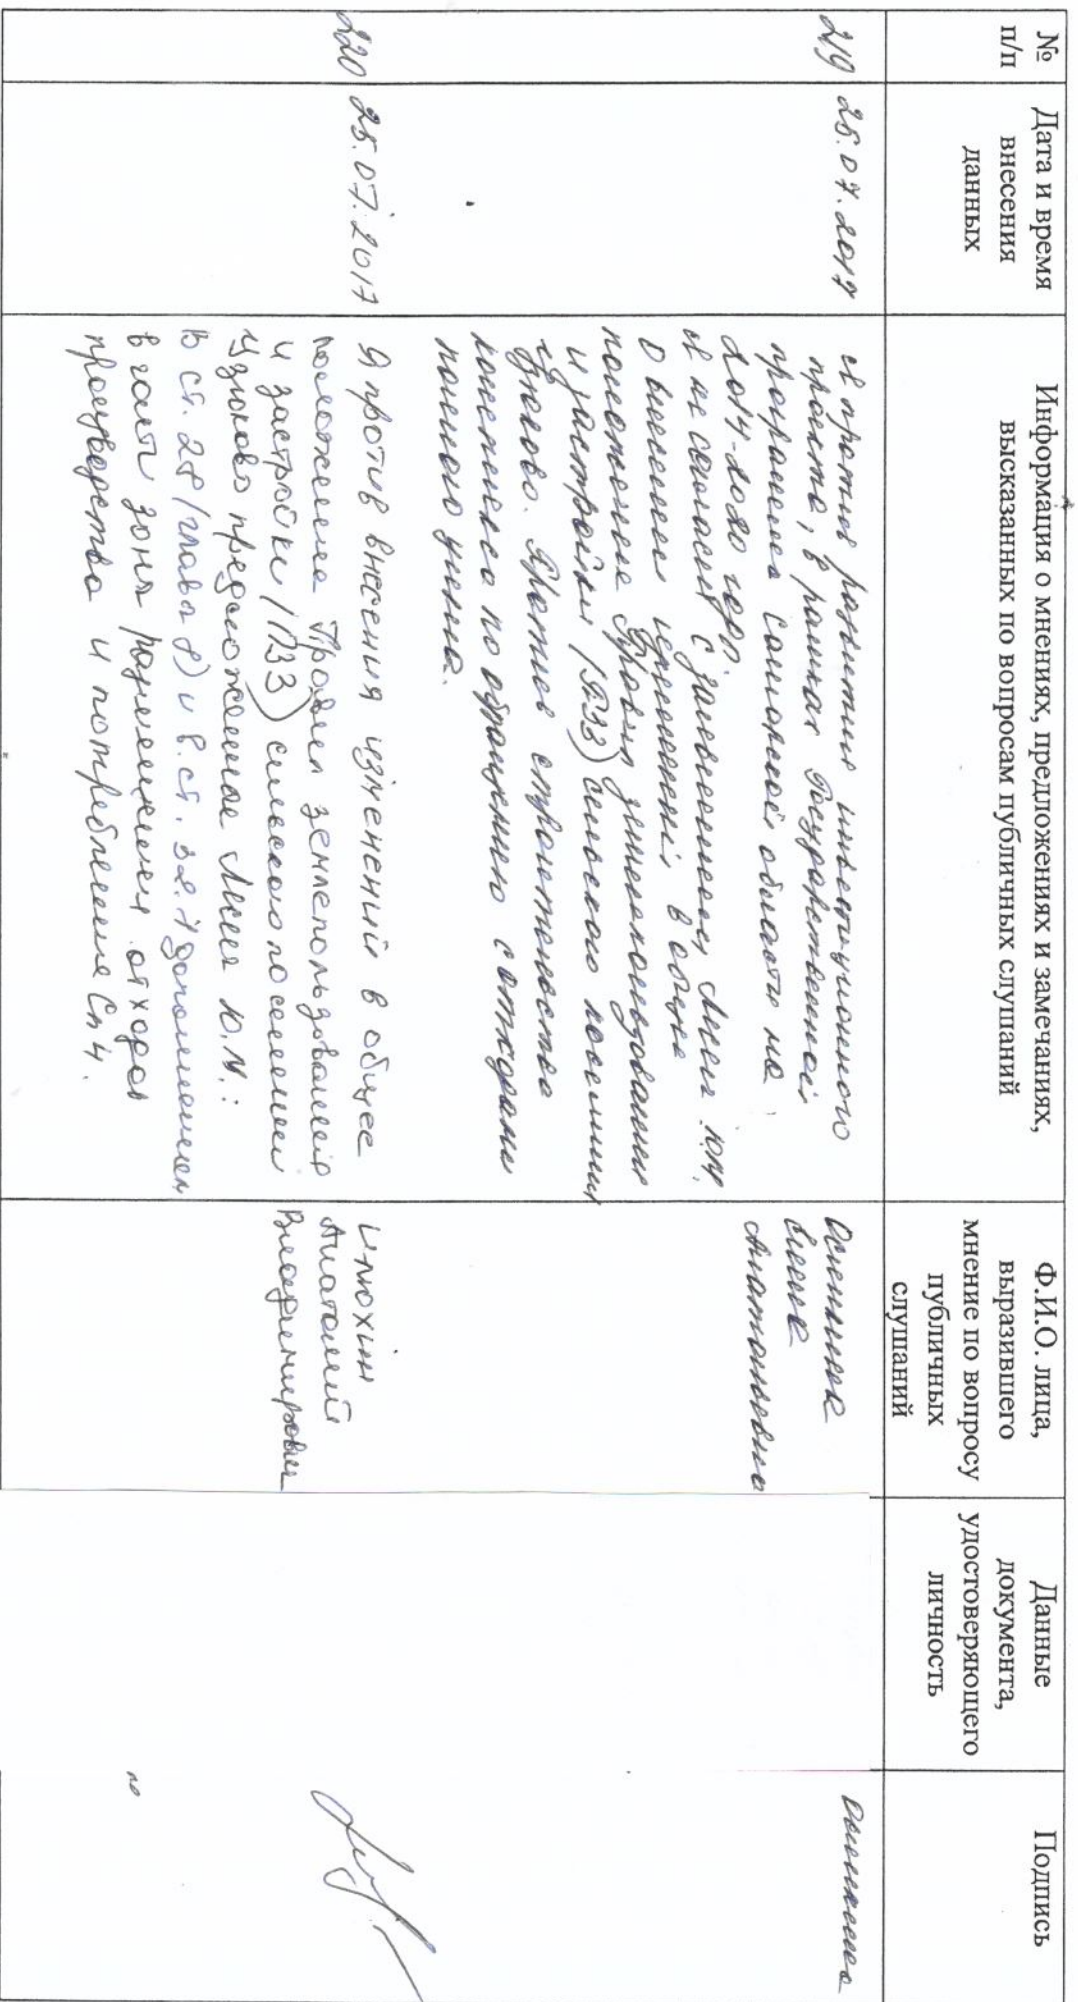 №
п/п
Дата и время
внесения
данных
Информация о мнениях, предложениях и замечаниях,
высказанных по вопросам публичных слушаний
Ф.И.О. лица,
выразившего
мнение по вопросу
публичных
слушаний
Данные
документа,
удостоверяющего
личность
Подпись
219
25.07.2017
Я против развития инвестиционного
проекта, в рамках Государственной
программы Самарской области на
2014-2020 годы.
Я не согласна с заявлением Ю.М.
О внесении изменений в общие
положения Правил землепользования
и застройки (ПЗЗ) сельского поселения
Узюково. Против строительства
комплекса по обращению с отходами
220
25.07.2017
Я против внесения изменений в общее
положение Правил землепользования
и застройки (ПЗЗ) сельского поселения
Узюково предложенное Ю.М.:
В ст. 28 (глава 8) и в ст. дополнением
в части зоны размещения отходов
производства и потребления Сп4.
Анатольевна
Илюхин
Анатолий
Владимирович